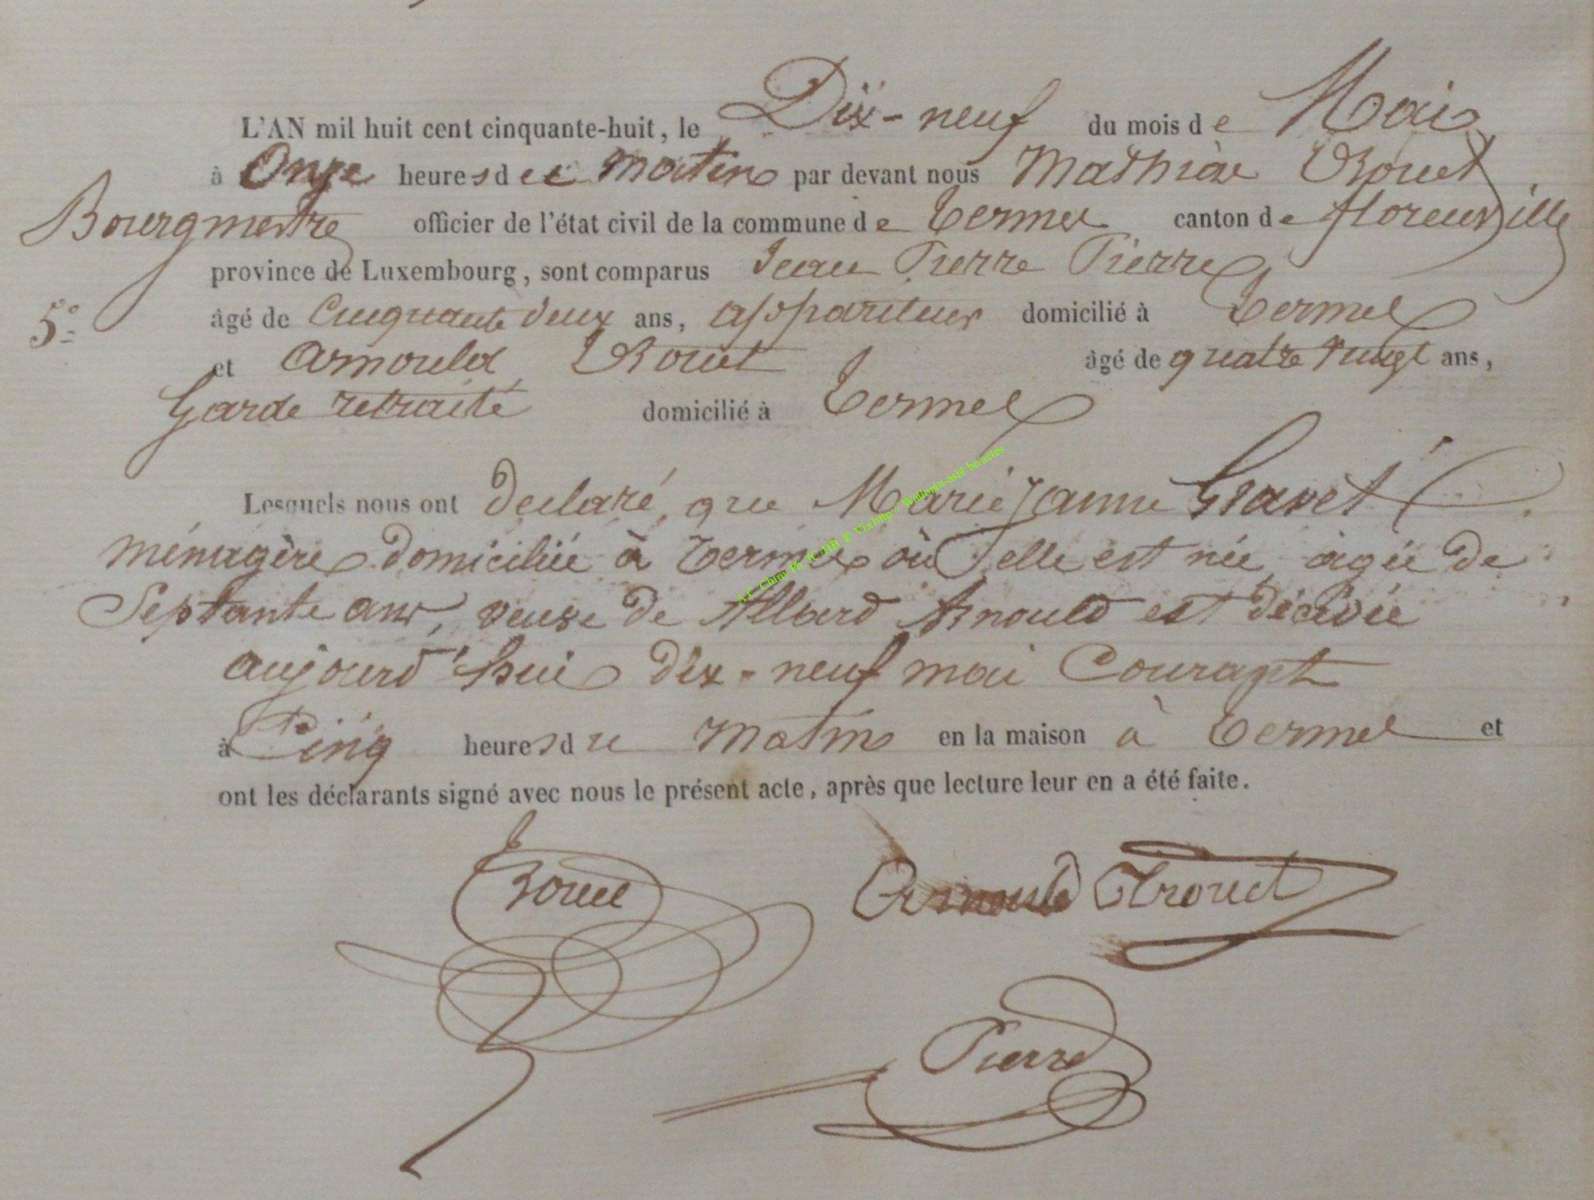 L'AN mil huit cent cinquante-huit, le Dix-neuf du mois de Mai
à Onze heures du matin par devant nous Mathias Trouet
Bourgmestre officier de l'état civil de la commune de Termes canton de florenville
province de Luxembourg, sont comparus Jean Pierre Pierre
5°
âgé de Cinquante deux ans, appariteur domicilié à Termes
et arnould Trouet âgé de quatre vingt ans,
Garde retraité domicilié à Termes
Lesquels nous ont declaré, que Marie Jeanne Gravet
ménagère domiciliée à Termes où elle est née agée de
Septante ans, veuve de Allard Arnould est décédée
aujourd'hui dix-neuf mai Courant
à Cinq heures du matin en la maison à Termes et
ont les déclarants signé avec nous le présent acte, après que lecture leur en a été faite.
Trouet Arnould Trouet
Pierre